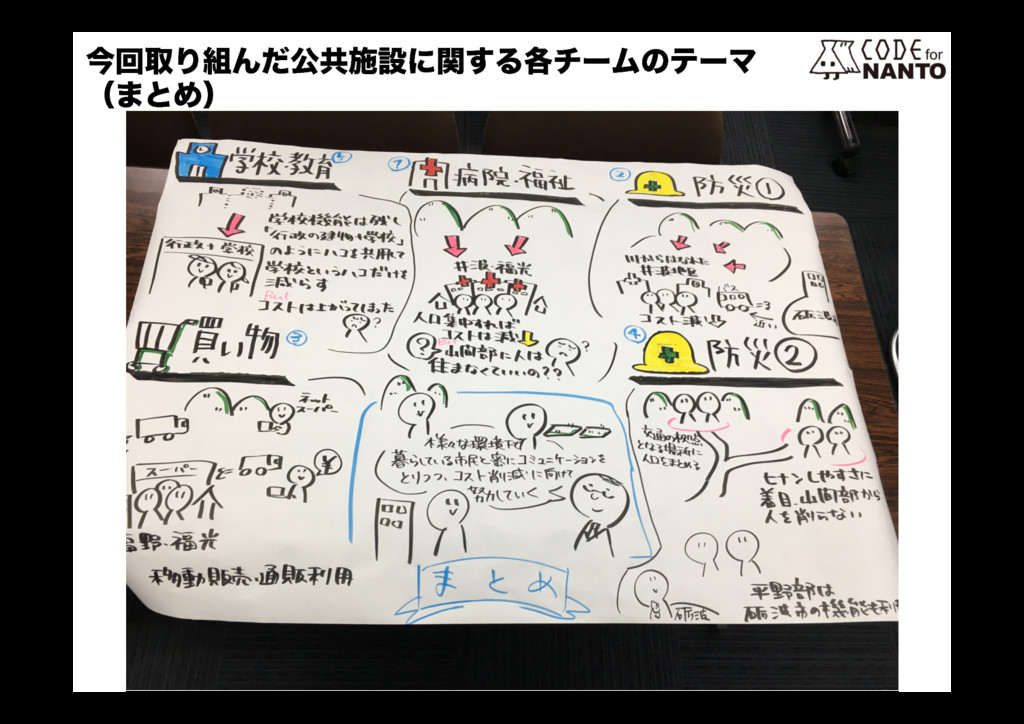 今回取り組んだ公共施設に関する各チームのテーマ
（まとめ）
CODE for
NANTO
学校・教育
行政+学校
学校機能は残し
「行政の建物+学校」
のようにハコを共用して
学校というハコだけを
減らす
But
コストは上がってしまった
?
①
病院・福祉
井波・福光
人口集中すれば
コストは減
But
山間部に人は
住まなくていいの??
?
②
防災①
川からはなれた
井波地区
バス
=3
コスト減
近い
砺波
買い物
③
ネット
スーパー
スーパー
¥
福野・福光
移動販売・通販利用
様々な環境下で
暮らしている市民と密にコミュニケーションを
とりつつ、コスト削減に向けて
努力していく
まとめ
④
防災②
交通の拠点
となる場所に
人口をまとめる
ヒナンしやすさに
着目、山間部から
人を削らない
平野部は
砺波市の機能も利用
砺波